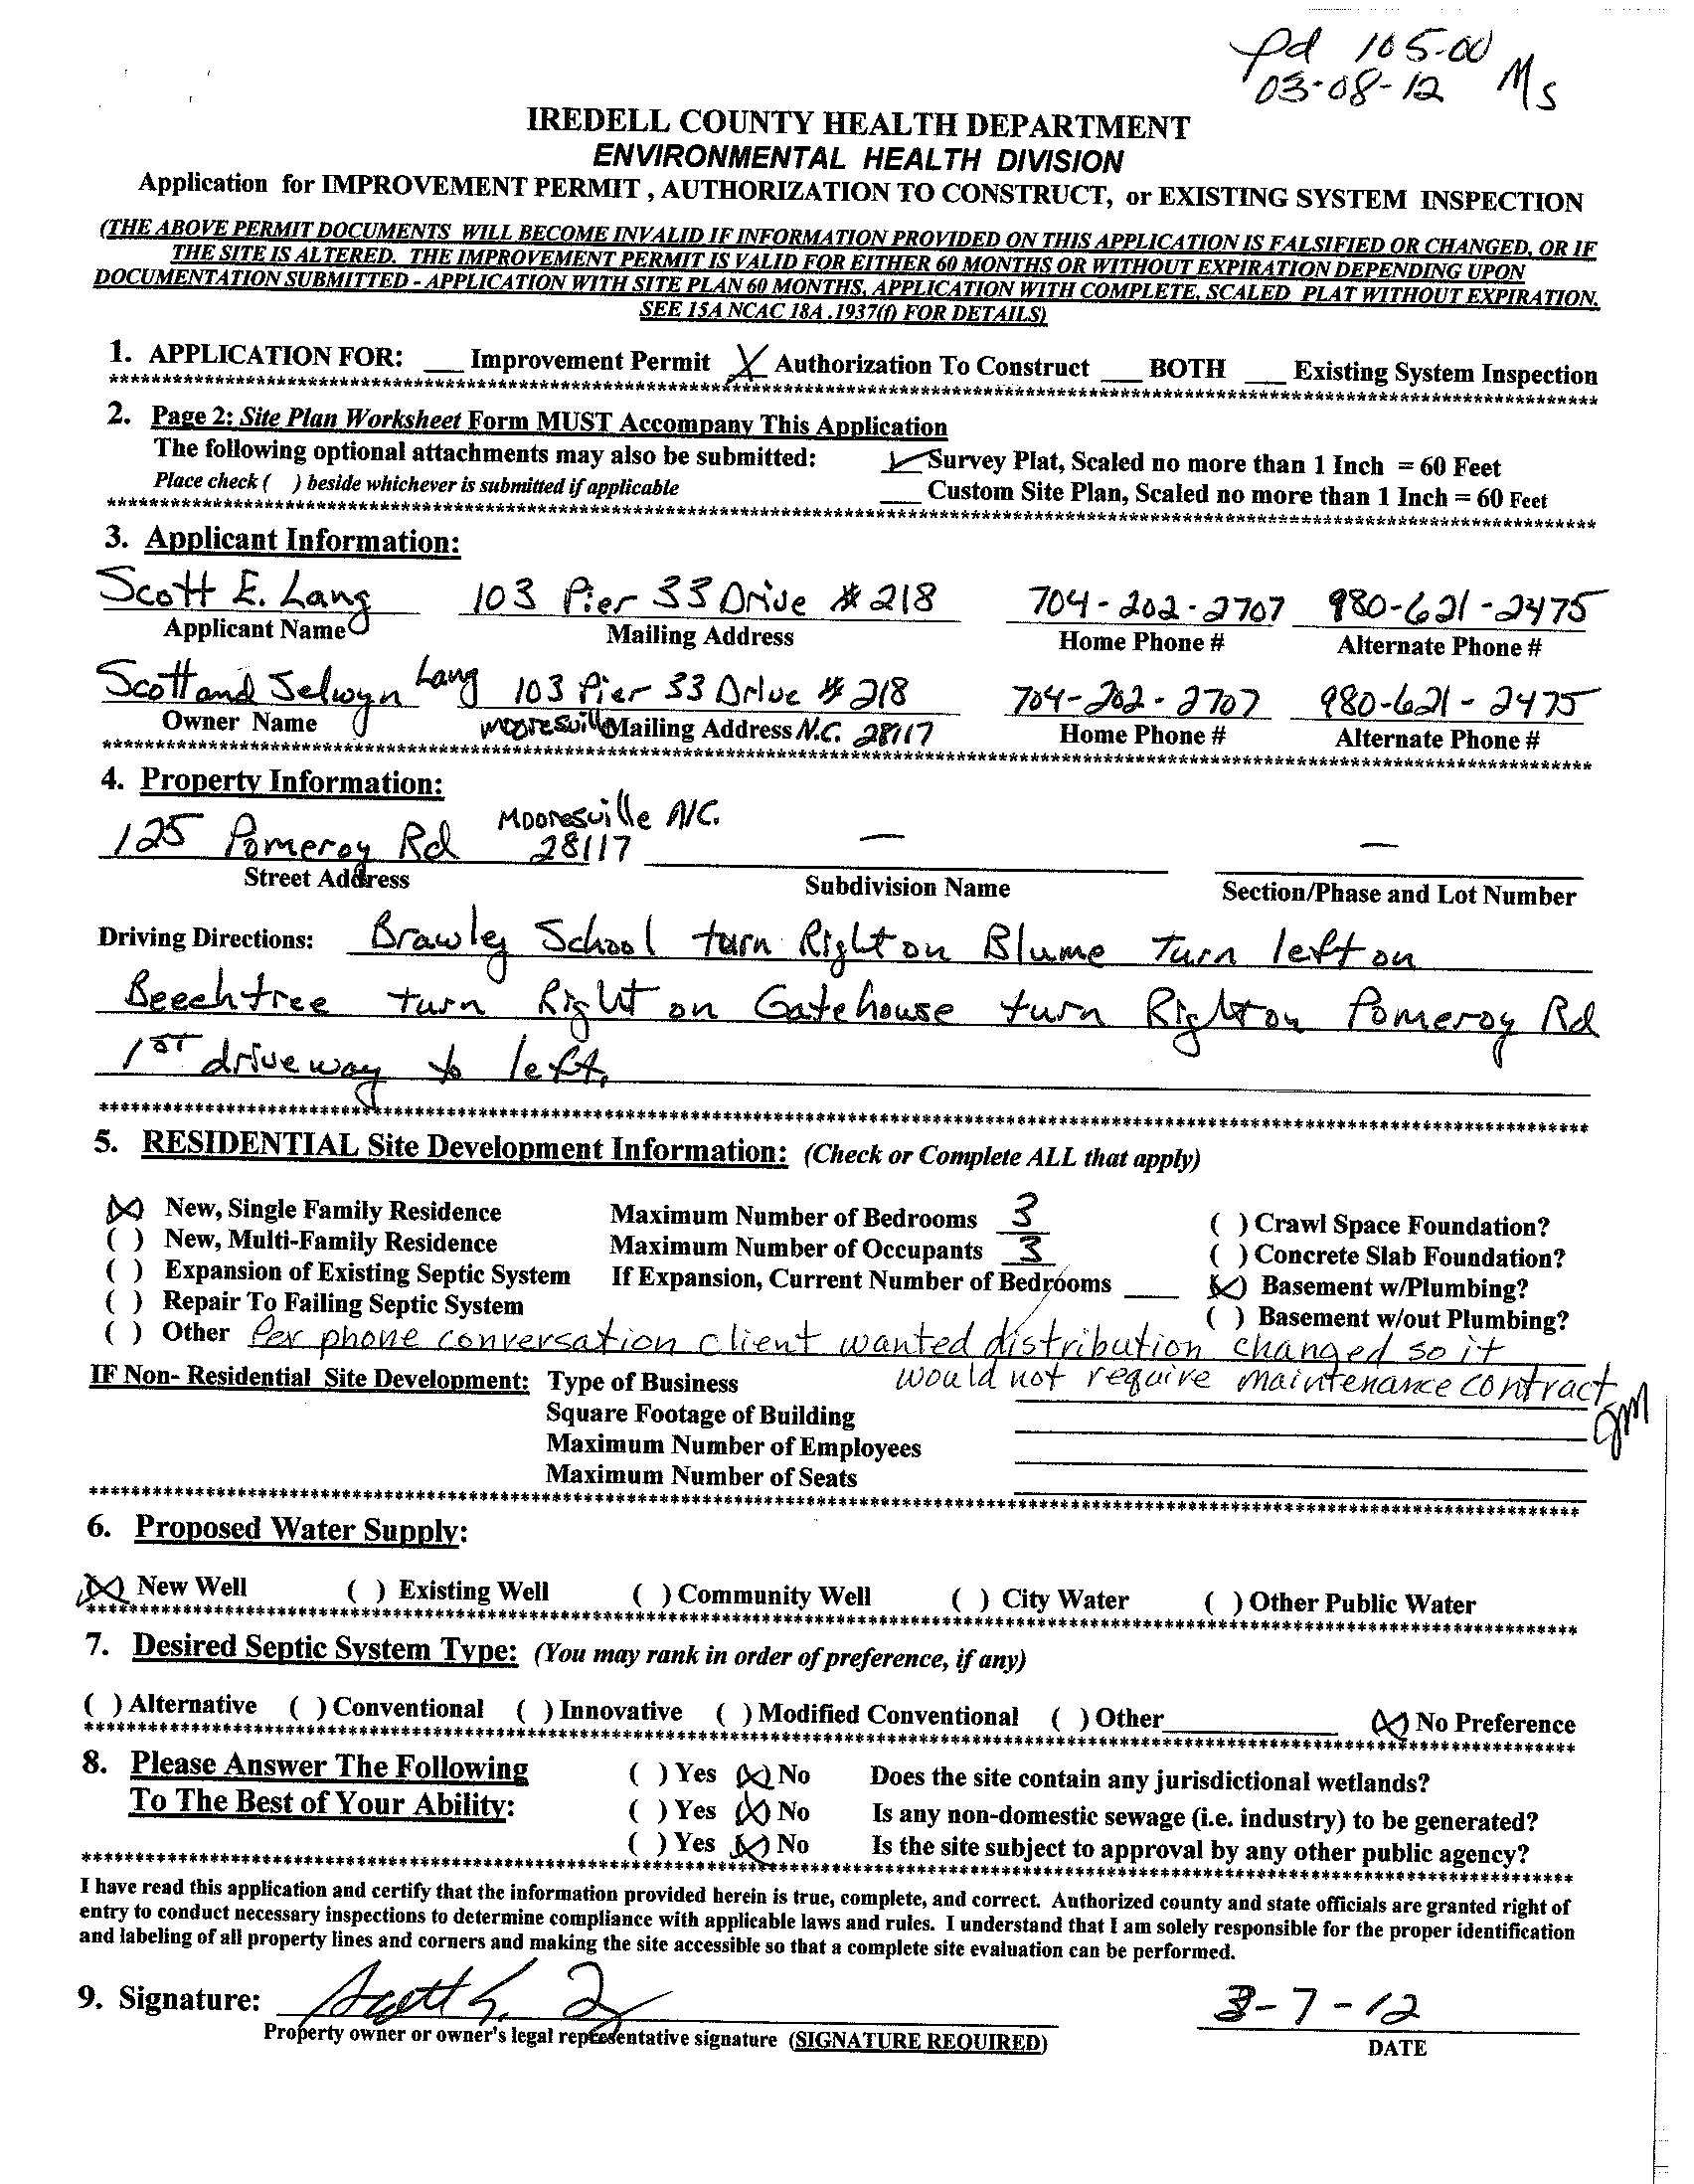 pd 105-00
03-08-12 MS
IREDELL COUNTY HEALTH DEPARTMENT
ENVIRONMENTAL HEALTH DIVISION
Application for IMPROVEMENT PERMIT , AUTHORIZATION TO CONSTRUCT, or EXISTING SYSTEM INSPECTION
(THE ABOVE PERMIT DOCUMENTS WILL BECOME INVALID IF INFORMATION PROVIDED ON THIS APPLICATION IS FALSIFIED OR CHANGED, OR IF
THE SITE IS ALTERED. THE IMPROVEMENT PERMIT IS VALID FOR EITHER 60 MONTHS OR WITHOUT EXPIRATION DEPENDING UPON
DOCUMENTATION SUBMITTED - APPLICATION WITH SITE PLAN 60 MONTHS, APPLICATION WITH COMPLETE, SCALED PLAT WITHOUT EXPIRATION.
SEE 15A NCAC 18A .1937(f) FOR DETAILS)
1. APPLICATION FOR: ___ Improvement Permit X Authorization To Construct ___ BOTH ___ Existing System Inspection
2. Page 2: Site Plan Worksheet Form MUST Accompany This Application
The following optional attachments may also be submitted: ✓ Survey Plat, Scaled no more than 1 Inch = 60 Feet
Place check ( ) beside whichever is submitted if applicable ___ Custom Site Plan, Scaled no more than 1 Inch = 60 Feet
3. Applicant Information:
Scott E. Lang 103 Pier 33 Drive #218 704-202-2707 980-621-2475
Applicant Name Mailing Address Home Phone # Alternate Phone #
Scott and Selwyn Lang 103 Pier 33 Drive #218 704-202-2707 980-621-2475
Owner Name Mooresville Mailing Address N.C. 28117 Home Phone # Alternate Phone #
4. Property Information:
125 Pomeroy Rd Mooresville N.C. 28117 — —
Street Address Subdivision Name Section/Phase and Lot Number
Driving Directions: Brawley School turn Right on Blume Turn left on
Beechtree turn Right on Gatehouse turn Right on Pomeroy Rd
1ST driveway to left.
5. RESIDENTIAL Site Development Information: (Check or Complete ALL that apply)
(X) New, Single Family Residence Maximum Number of Bedrooms 3 ( ) Crawl Space Foundation?
( ) New, Multi-Family Residence Maximum Number of Occupants 3 ( ) Concrete Slab Foundation?
( ) Expansion of Existing Septic System If Expansion, Current Number of Bedrooms ___ (X) Basement w/Plumbing?
( ) Repair To Failing Septic System ( ) Basement w/out Plumbing?
( ) Other Per phone conversation client wanted distribution changed so it
would not require maintenance contract
IF Non- Residential Site Development: Type of Business
Square Footage of Building
gm
Maximum Number of Employees
Maximum Number of Seats
6. Proposed Water Supply:
(X) New Well ( ) Existing Well ( ) Community Well ( ) City Water ( ) Other Public Water
7. Desired Septic System Type: (You may rank in order of preference, if any)
( ) Alternative ( ) Conventional ( ) Innovative ( ) Modified Conventional ( ) Other___ (X) No Preference
8. Please Answer The Following ( ) Yes (X) No Does the site contain any jurisdictional wetlands?
To The Best of Your Ability: ( ) Yes (X) No Is any non-domestic sewage (i.e. industry) to be generated?
( ) Yes (X) No Is the site subject to approval by any other public agency?
I have read this application and certify that the information provided herein is true, complete, and correct. Authorized county and state officials are granted right of
entry to conduct necessary inspections to determine compliance with applicable laws and rules. I understand that I am solely responsible for the proper identification
and labeling of all property lines and corners and making the site accessible so that a complete site evaluation can be performed.
9. Signature: Scott E. Lang 3-7-12
Property owner or owner's legal representative signature (SIGNATURE REQUIRED) DATE